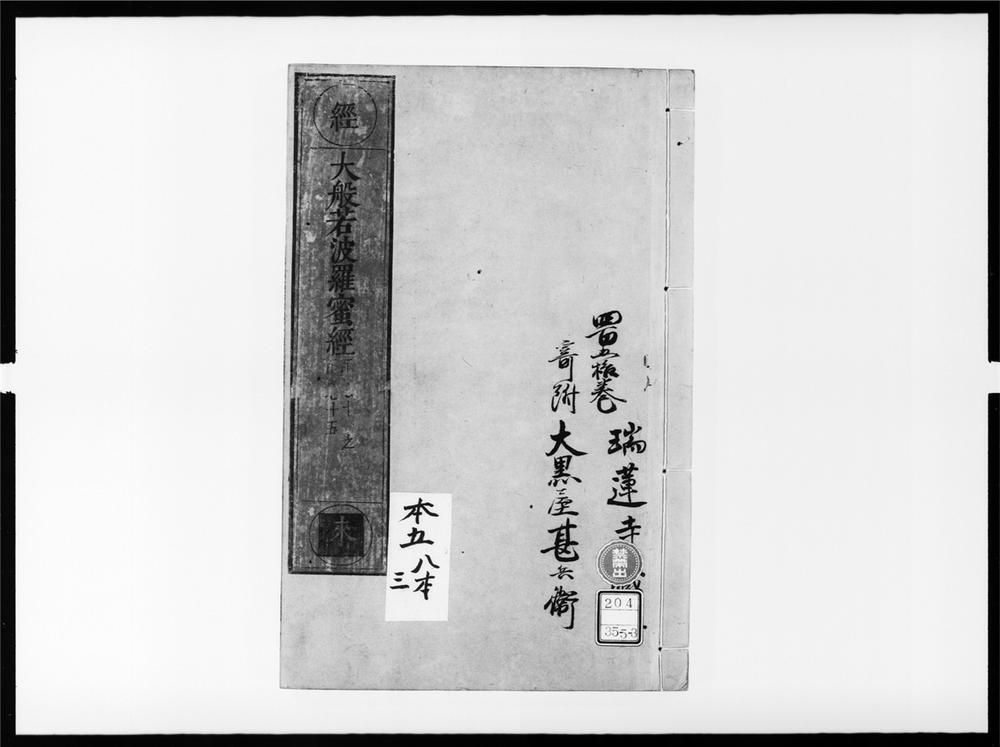 四百五拾巻
瑞蓮寺蔵
寄附 大黒屋甚兵衛
經
大般若波羅蜜經
十五
之
來
本五
八本
三
禁帶出
204
355-3